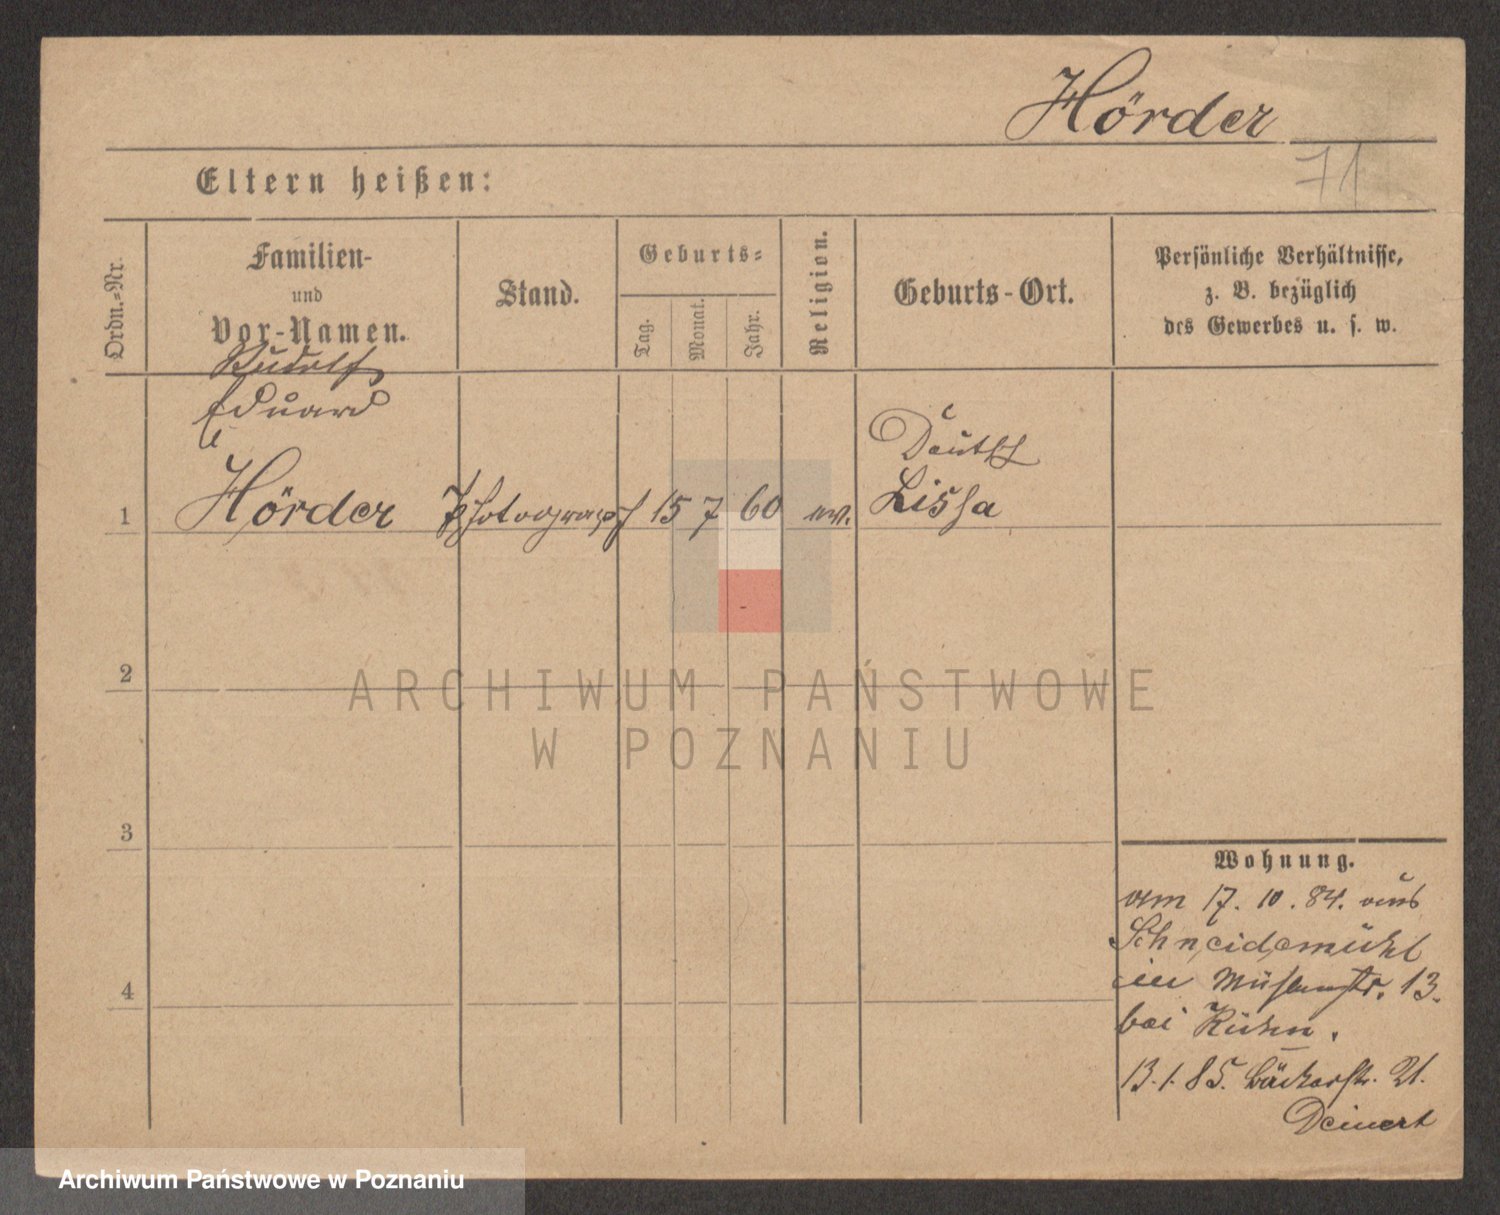 Hörder
71
Eltern heißen:
Ordn.-Nr.
Familien-
und
Vor-Namen.
Stand.
Geburts-
Tag.
Monat.
Jahr.
Religion.
Geburts-Ort.
Persönliche Verhältnisse,
z. B. bezüglich
des Gewerbes u. s. w.
Rudolf
Eduard
1 Hörder Photograph 15 7 60 ev. Deutsch
Lissa
2
3
4
ARCHIWUM PAŃSTWOWE
W POZNANIU
Wohnung.
am 17. 10. 84. aus
Schneidemühl
in Mühlenstr. 13.
bei Kühn.
13. 1. 85. Bäckerstr. 21.
Deinert
Archiwum Państwowe w Poznaniu